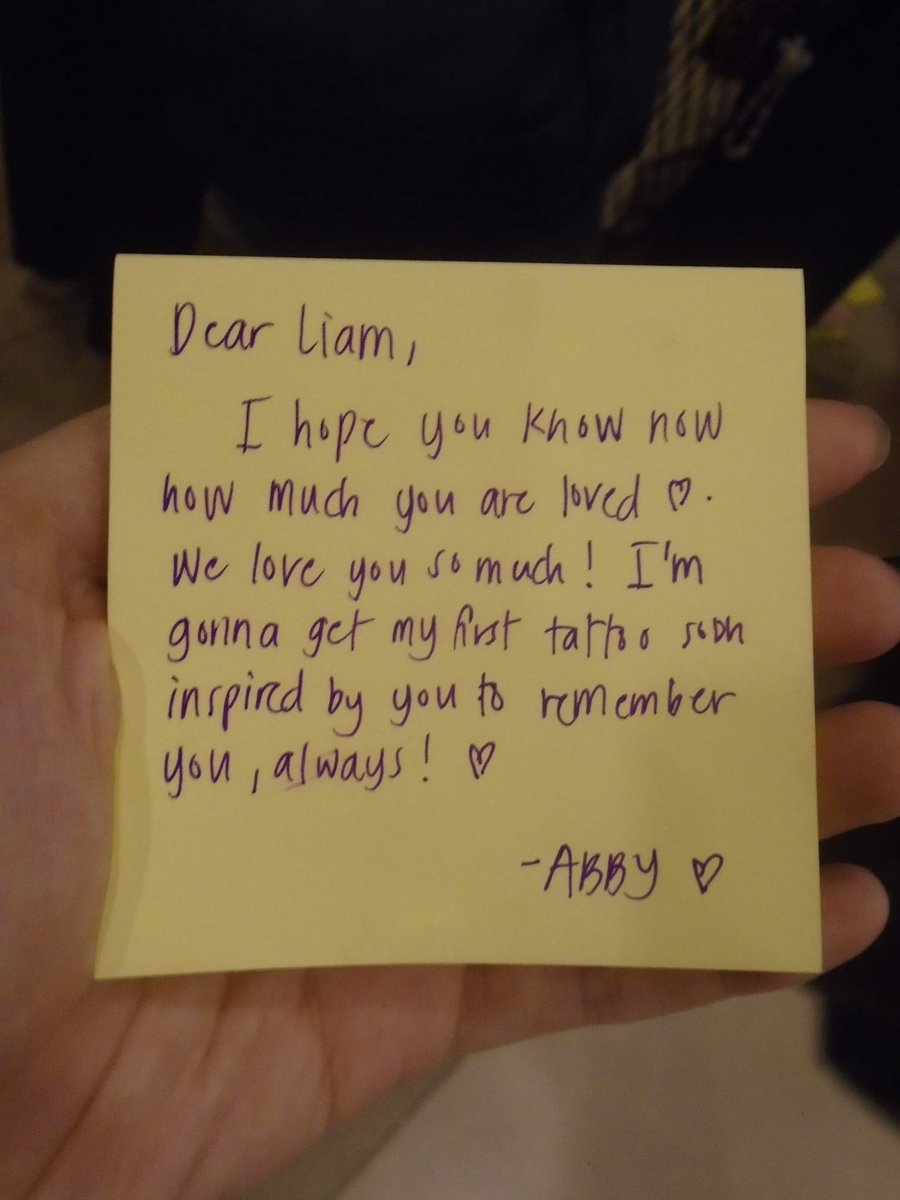 Dear Liam,
I hope you know now
how much you are loved ♡.
We love you so much! I'm
gonna get my first tattoo soon
inspired by you to remember
you, always! ♡
-ABBY ♡